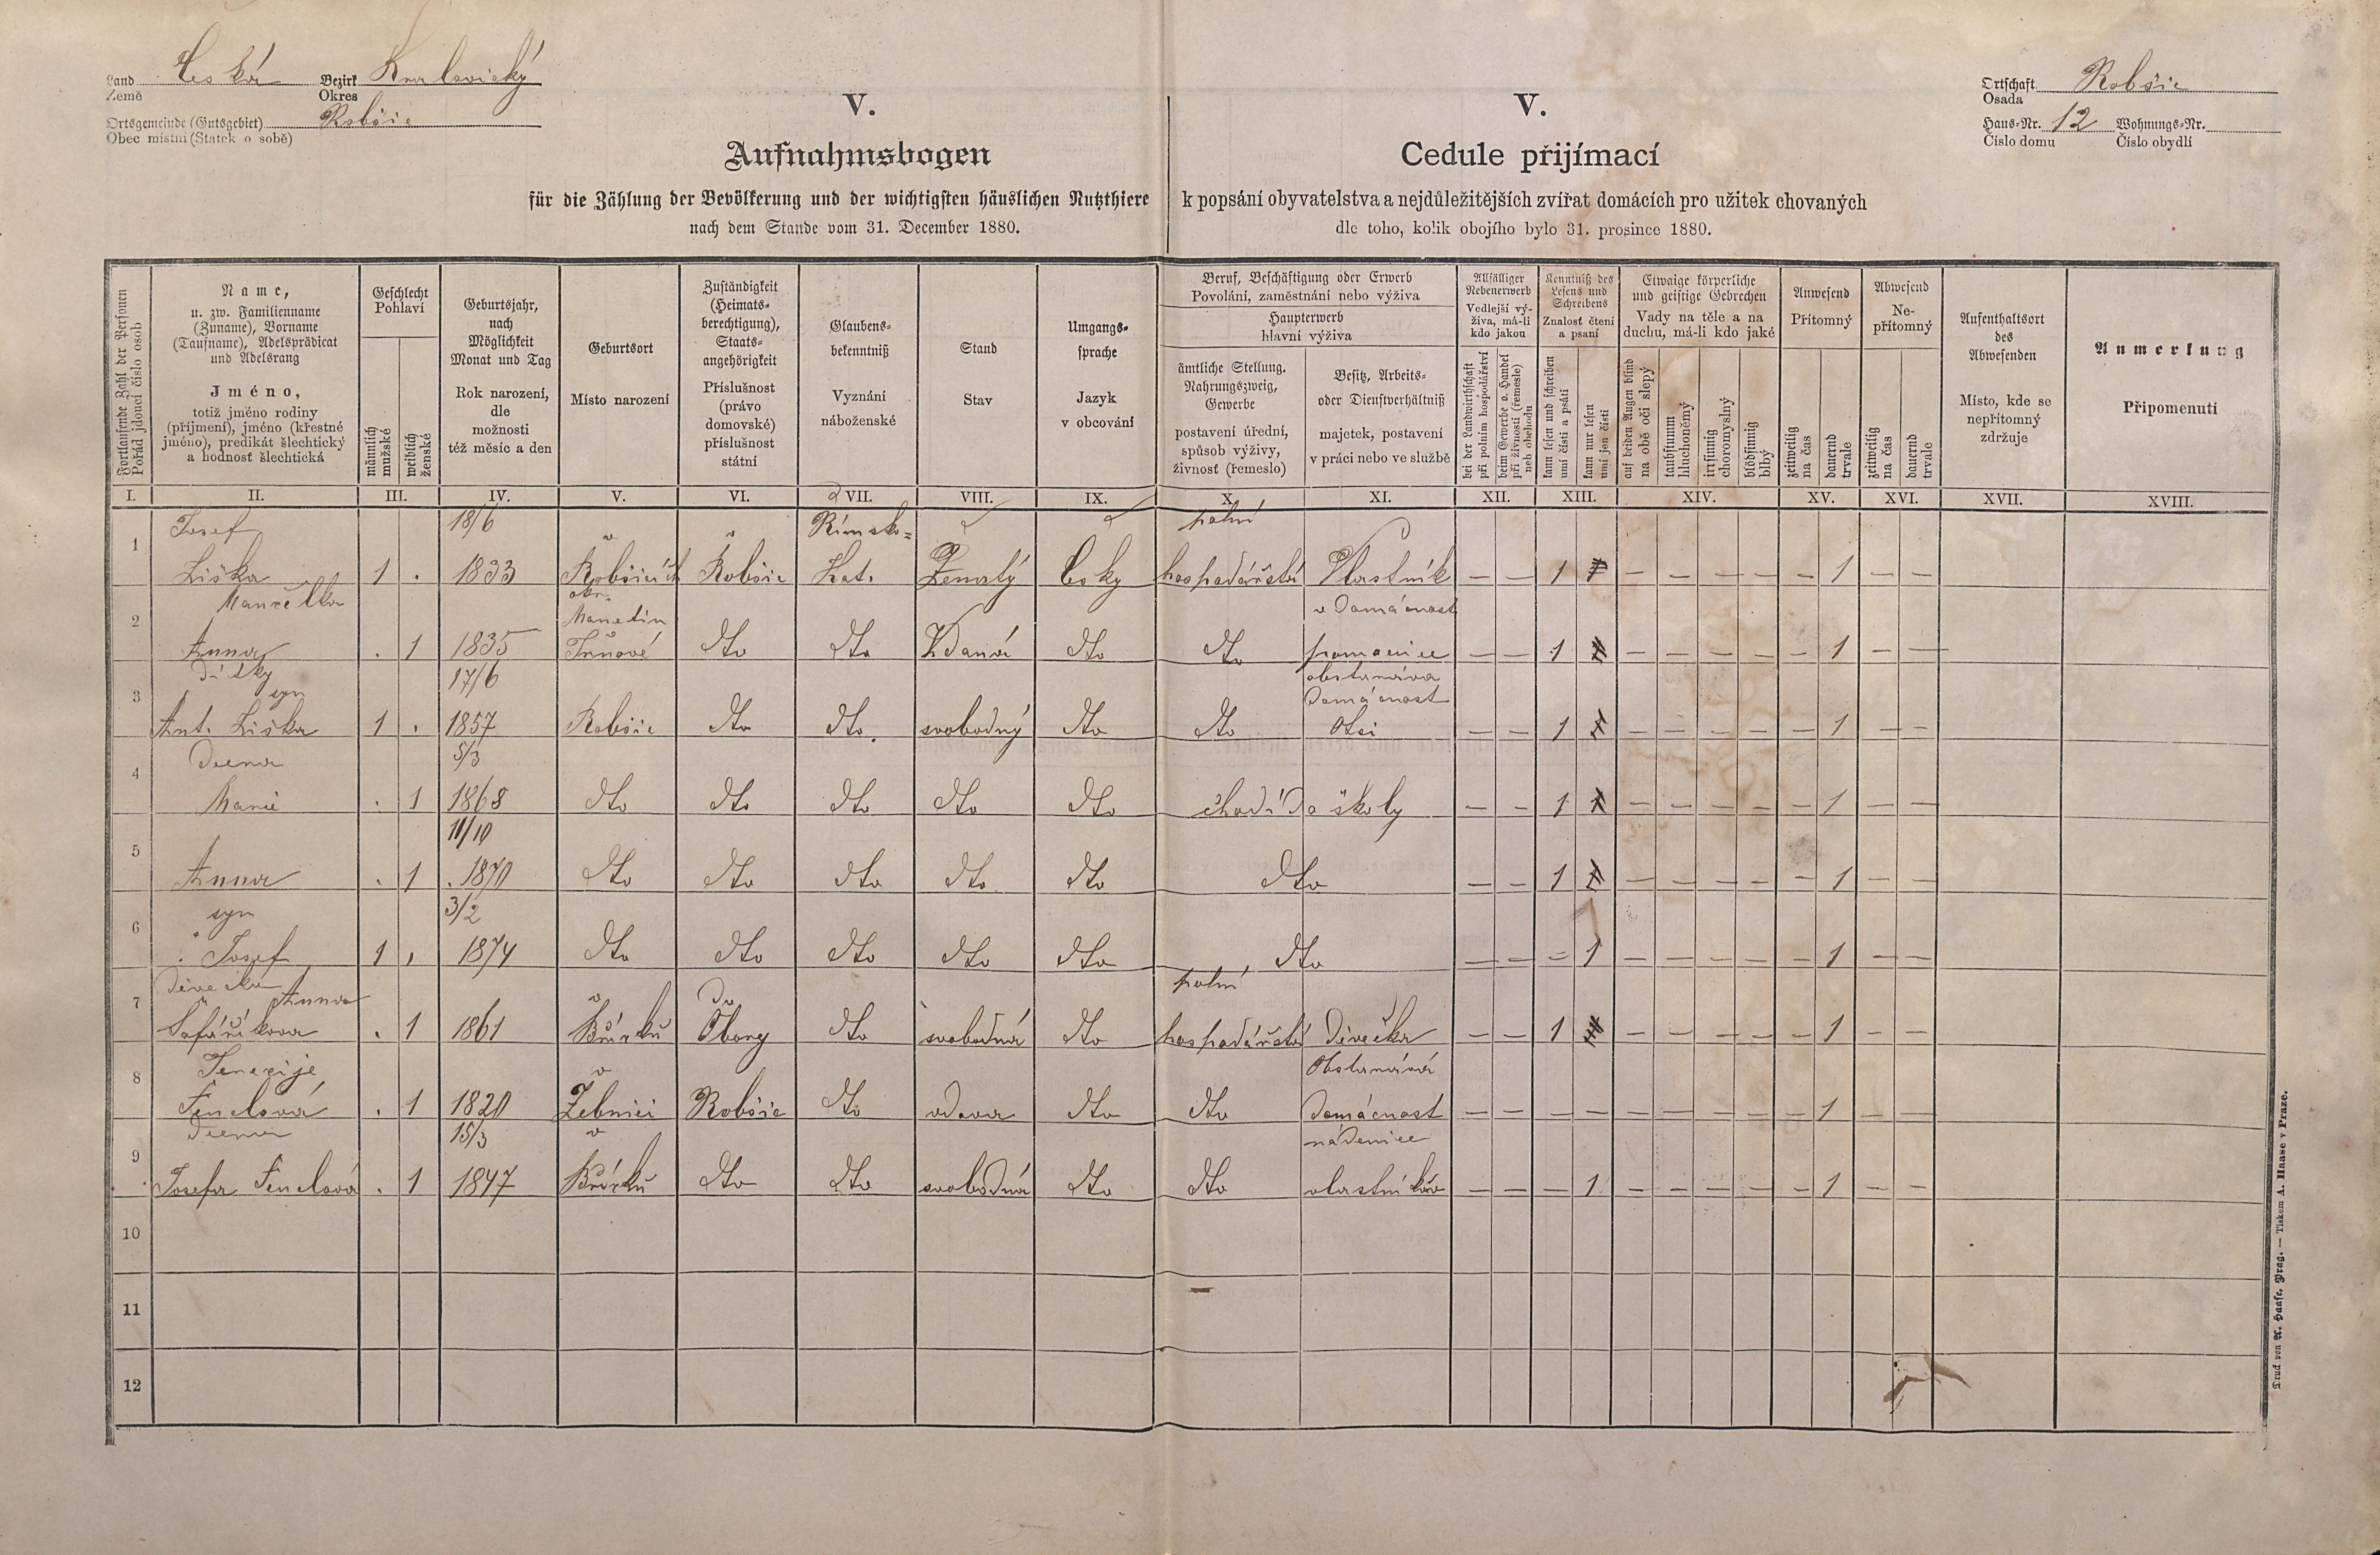 Land Česká Bezirk Kralovický
Země Okres
Ortsgemeinde (Gutsgebiet) Robšic
Obec místní (Statek o sobě)
V.
Aufnahmsbogen
für die Zählung der Bevölkerung und der wichtigsten häuslichen Nutzthiere
nach dem Stande vom 31. December 1880.
V.
Cedule přijímací
k popsání obyvatelstva a nejdůležitějších zvířat domácích pro užitek chovaných
dle toho, kolik obojího bylo 31. prosince 1880.
Ortschaft Robšic
Osada
Haus-Nr. 12 Wohnungs-Nr.
Číslo domu Číslo obydlí
Fortlaufende Zahl der Personen
Pořád jdoucí číslo osob
Name,
u. zw. Familienname
(Zuname), Vorname
(Taufname), Adelsprädicat
und Adelsrang
Jméno,
totiž jméno rodiny
(příjmení), jméno (křestné
jméno), predikát šlechtický
a hodnosť šlechtická
Geschlecht
Pohlaví
männlich
mužské
weiblich
ženské
Geburtsjahr,
nach
Möglichkeit
Monat und Tag
Rok narození,
dle
možnosti
též měsíc a den
Geburtsort
Místo narození
Zuständigkeit
(Heimats-
berechtigung),
Staats-
angehörigkeit
Příslušnost
(právo
domovské)
příslušnost
státní
Glaubens-
bekenntniß
Vyznání
náboženské
Stand
Stav
Umgangs-
sprache
Jazyk
v obcování
Beruf, Beschäftigung oder Erwerb
Povolání, zaměstnání nebo výživa
Haupterwerb
hlavní výživa
ämtliche Stellung,
Nahrungszweig,
Gewerbe
postavení úřední,
spůsob výživy,
živnosť (řemeslo)
Besitz, Arbeits-
oder Dienstverhältniß
majetek, postavení
v práci nebo ve službě
Allfälliger
Nebenerwerb
Vedlejší vý-
živa, má-li
kdo jakou
bei der Landwirthschaft
při polním hospodářství
beim Gewerbe o. Handel
při živnosti (řemesle)
neb obchodu
Kenntniß des
Lesens und
Schreibens
Znalosť čtení
a psaní
kann lesen und schreiben
umí čísti a psáti
kann nur lesen
umí jen čísti
Etwaige körperliche
und geistige Gebrechen
Vady na těle a na
duchu, má-li kdo jaké
auf beiden Augen blind
na obě oči slepý
taubstumm
hluchoněmý
irrsinnig
choromyslný
blödsinnig
blbý
Anwesend
Přítomný
zeitweilig
na čas
dauernd
trvale
Abwesend
Ne-
přítomný
zeitweilig
na čas
dauernd
trvale
Aufenthaltsort
des
Abwesenden
Místo, kde se
nepřítomný
zdržuje
Anmerkung
Připomenutí
I. II. III. IV. V. VI. VII. VIII. IX. X. XI. XII. XIII. XIV. XV. XVI. XVII. XVIII.
Josef 18/6 v v Římsko= polní
1 Liška 1 . 1833 Robšicích Robšic Kat. Ženatý Česky hospodářství Vlastník — — 1 — — — — — 1 — —
Manželka okr. Manetín v Domácnosti
2 Anna . 1 1835 Trnové dto dto Vdaná dto dto pomocnice — — 1 — — — — — 1 — —
Dítky syn 17/6 obstarává Domácnost
3 Ant. Liška 1 . 1857 Robšic dto dto svobodný dto dto Otci — — 1 — — — — — 1 — —
Dcera 5/3
4 Marie . 1 1868 dto dto dto dto dto chodí do školy — — 1 — — — — — 1 — —
11/10
5 Anna . 1 1870 dto dto dto dto dto dto — — 1 — — — — — 1 — —
syn 3/2
6 Josef 1 . 1874 dto dto dto dto dto dto — — — 1 — — — — — 1 — —
Děvečka Anna v Do polní
7 Šafaříkova . 1 1861 Obory dto svobodná dto hospodářství Děvečka — — 1 — — — — — 1 — —
v Obstarává
8 Fenclová . 1 1820 Žebnici Robšic dto vdova dto dto Domácnost — — — — — — — — — 1 — —
Dcera 15/3 v nádenice
9 Josefa Fenclová . 1 1847 dto dto svobodná dto dto — — — 1 — — — — — 1 — —
10
11
12
Druck von A. Haase, Prag. — Tiskem A. Haase v Praze.